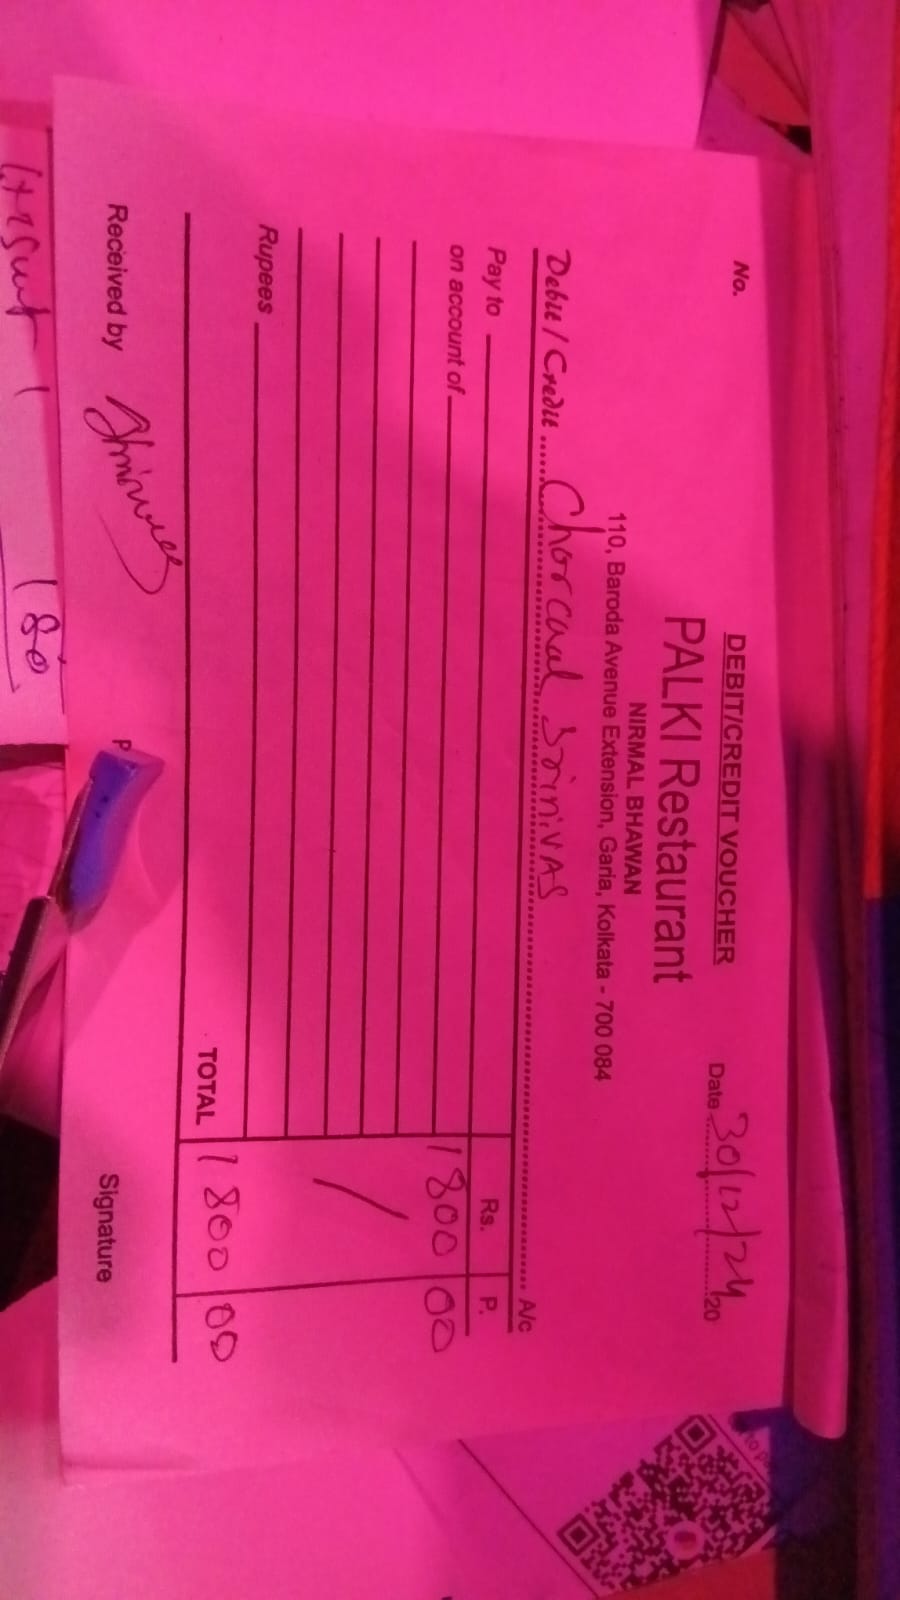 DEBIT/CREDIT VOUCHER
No.
Date 30/12/24 20
PALKI Restaurant
NIRMAL BHAWAN
110, Baroda Avenue Extension, Garia, Kolkata - 700 084
Debit / Credit Chorcaal SriniVAS A/c
Pay to Rs. P.
on account of 1800 00
Rupees
TOTAL 1800 00
Received by
P
Signature
180